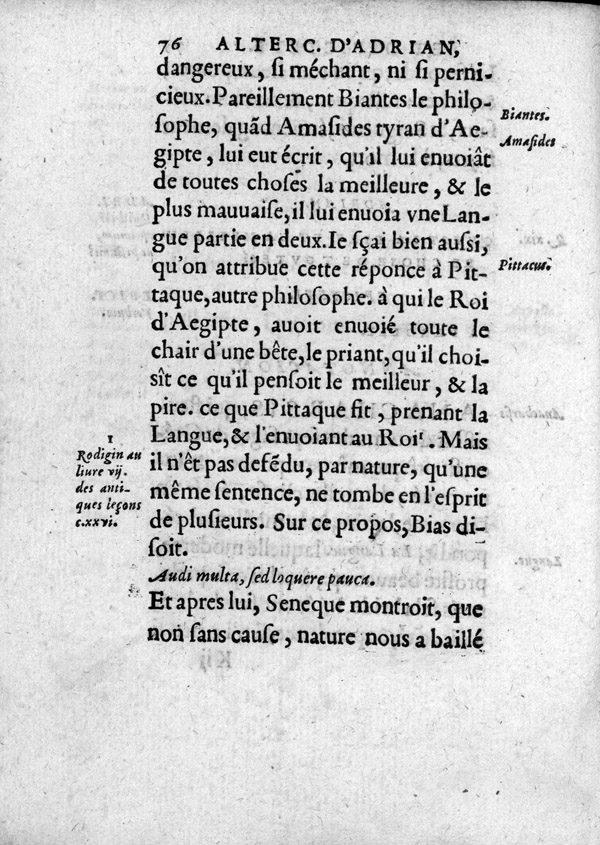 76 ALTERC. D'ADRIAN,
dangereux, ſi méchant, ni ſi perni-
cieux. Pareillement Biantes le philo-
ſophe, quãd Amaſides tyran d'Ae-
gipte, lui eut écrit, qu'il lui enuoiât
de toutes choſes la meilleure, & le
plus mauuaiſe, il lui enuoia vne Lan-
gue partie en deux. Ie ſçai bien auſſi,
qu'on attribue cette réponce à Pit-
taque, autre philoſophe. à qui le Roi
d'Aegipte, auoit enuoié toute le
chair d'une bête, le priant, qu'il choi-
sît ce qu'il penſoit le meilleur, & la
pire. ce que Pittaque fit, prenant la
Langue, & l'enuoiant au Roi¹. Mais
il n'êt pas defédu, par nature, qu'une
même sentence, ne tombe en l'eſprit
de pluſieurs. Sur ce propos, Bias di-
ſoit.
Audi multa, ſed loquere pauca.
Et apres lui, Seneque montroit, que
non ſans cauſe, nature nous a baillé
Biantes.
Amaſides
Pittacus.
1
Rodigin au
liure vij.
des anti-
ques leçons
c.xxvi.